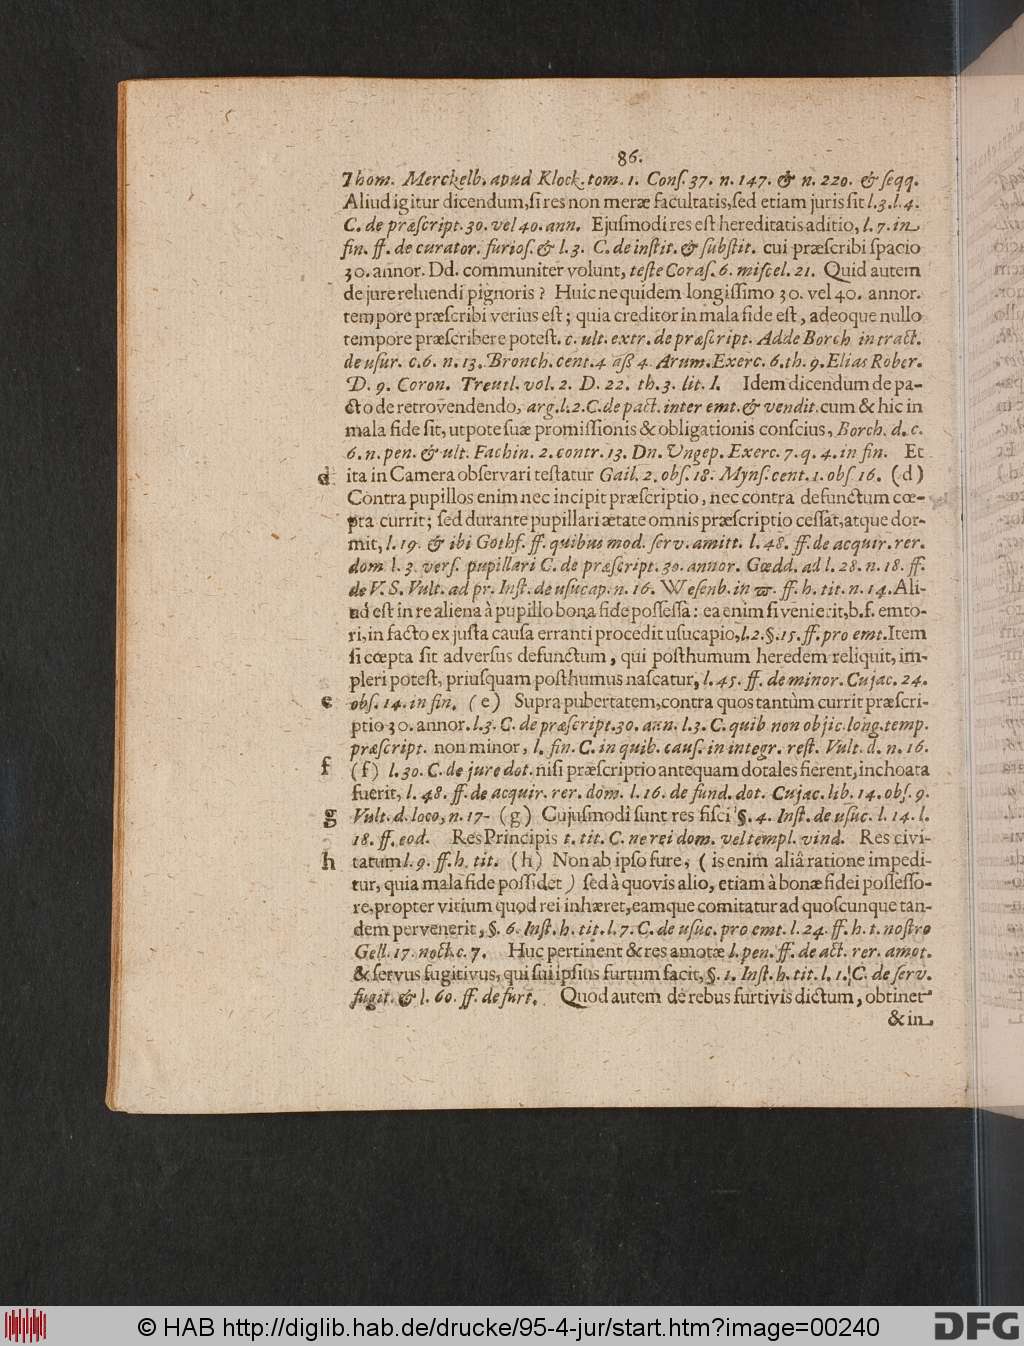 86.
Thom. Merckelb. apud Klock. tom. 1. Conſ. 37. n. 147. & n. 220. & ſeqq.
Aliud igitur dicendum, ſi res non meræ facultatis, ſed etiam juris ſit l. 3. l. 4.
C. de præſcript. 30. vel 40. ann. Ejuſmodi res eſt hereditatis aditio, l. 7. in
fin. ff. de curator. furioſ. & l. 3. C. de inſtit. & ſubſtit. cui præſcribi ſpacio
30. annor. Dd. communiter volunt, teſte Coraſ. 6. miſcel. 21. Quid autem
de jure reluendi pignoris? Huic ne quidem longiſſimo 30. vel 40. annor.
tempore præſcribi verius eſt; quia creditor in mala fide eſt, adeoque nullo
tempore præſcribere poteſt. c. ult. extr. de præſcript. Adde Borch in tract.
de uſur. c. 6. n. 13. Bronch. cent. 4 aß 4. Arum. Exerc. 6. th. 9. Elias Rober.
D. 9. Coron. Treutl. vol. 2. D. 22. th. 3. lit. I. Idem dicendum de pa-
cto de retrovendendo, arg. l. 2. C. de pact. inter emt. & vendit. cum & hic in
mala fide ſit, utpote ſuæ promiſſionis & obligationis conſcius, Borch. d. c.
6. n. pen. & ult. Fachin. 2. contr. 13. Dn. Ungep. Exerc. 7. q. 4. in fin. Et
d ita in Camera obſervari teſtatur Gail. 2. obſ. 18. Mynſ. cent. 1. obſ. 16. (d)
Contra pupillos enim nec incipit præſcriptio, nec contra defunctum cœ-
pta currit; ſed durante pupillari ætate omnis præſcriptio ceſſat, atque dor-
mit, l. 19. & ibi Gothf. ff. quibus mod. ſerv. amitt. l. 48. ff. de acquir. rer.
dom l. 3. verſ. pupillari C. de præſcript. 30. annor. Gœdd. ad l. 28. n. 18. ff.
de V. S. Vult. ad pr. Inſt. de uſucap. n. 16. Weſenb. in ϖ. ff. h. tit. n. 14. Ali-
ud eſt in re aliena à pupillo bona fide poſſeſſa: ea enim ſi venierit, b. f. emto-
ri, in facto ex juſta cauſa erranti procedit uſucapio, l. 2. §. 15. ff. pro emt. Item
ſi cœpta ſit adverſus defunctum, qui poſthumum heredem reliquit, im-
pleri poteſt, priuſquam poſthumus naſcatur, l. 45. ff. de minor. Cujac. 24.
e obſ. 14. in fin. (e) Supra pubertatem, contra quos tantùm currit præſcri-
ptio 30. annor. l. 3. C. de præſcript. 30. ann. l. 3. C. quib non objic. long. temp.
præſcript. non minor, l. fin. C. in quib. cauſ. in integr. reſt. Vult. d. n. 16.
f (f) l. 30. C. de jure dot. niſi præſcriptio antequam dotales fierent, inchoata
fuerit, l. 48. ff. de acquir. rer. dom. l. 16. de fund. dot. Cujac. lib. 14. obſ. 9.
g Vult. d. loco, n. 17- (g) Cujuſmodi ſunt res fiſci §. 4. Inſt. de uſuc. l. 14. l.
18. ff. eod. Res Principis t. tit. C. ne rei dom. vel templ. vind. Res civi-
h tatum l. 9. ff. h. tit. (h) Non ab ipſo fure, (is enim aliâ ratione impedi-
tur, quia mala fide poſſidet) ſed à quovis alio, etiam à bonæ fidei poſſeſſo-
re, propter vitium quod rei inhæret, eamque comitatur ad quoſcunque tan-
dem pervenerit, §. 6. Inſt. h. tit. l. 7. C. de uſuc. pro emt. l. 24. ff. h. t. noſtro
Gell. 17. noct. c. 7. Huc pertinent & res amotæ l. pen. ff. de act. rer. amot.
& ſervus fugitivus, qui ſui ipſius furtum facit, §. 1. Inſt. h. tit. l. 1. C. de ſerv.
fugit. & l. 60. ff. de furt. Quod autem de rebus furtivis dictum, obtinet
& in
© HAB http://diglib.hab.de/drucke/95-4-jur/start.htm?image=00240
DFG